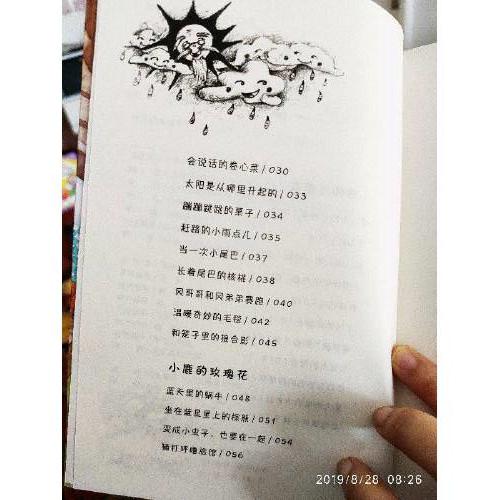 会说话的卷心菜 / 030
太阳是从哪里升起的 / 033
蹦蹦跳跳的栗子 / 034
赶路的小雨点儿 / 035
当一次小尾巴 / 037
长着尾巴的核桃 / 038
风哥哥和风弟弟赛跑 / 040
温暖奇妙的毛径 / 042
和笼子里的狼合影 / 045
小鹿的玫瑰花
蓝天里的蜗牛 / 048
坐在蓝星星上的棕熊 / 051
变成小虫子，也要在一起 / 054
猫打呼噜旅馆 / 056
2019/8/28 08:26